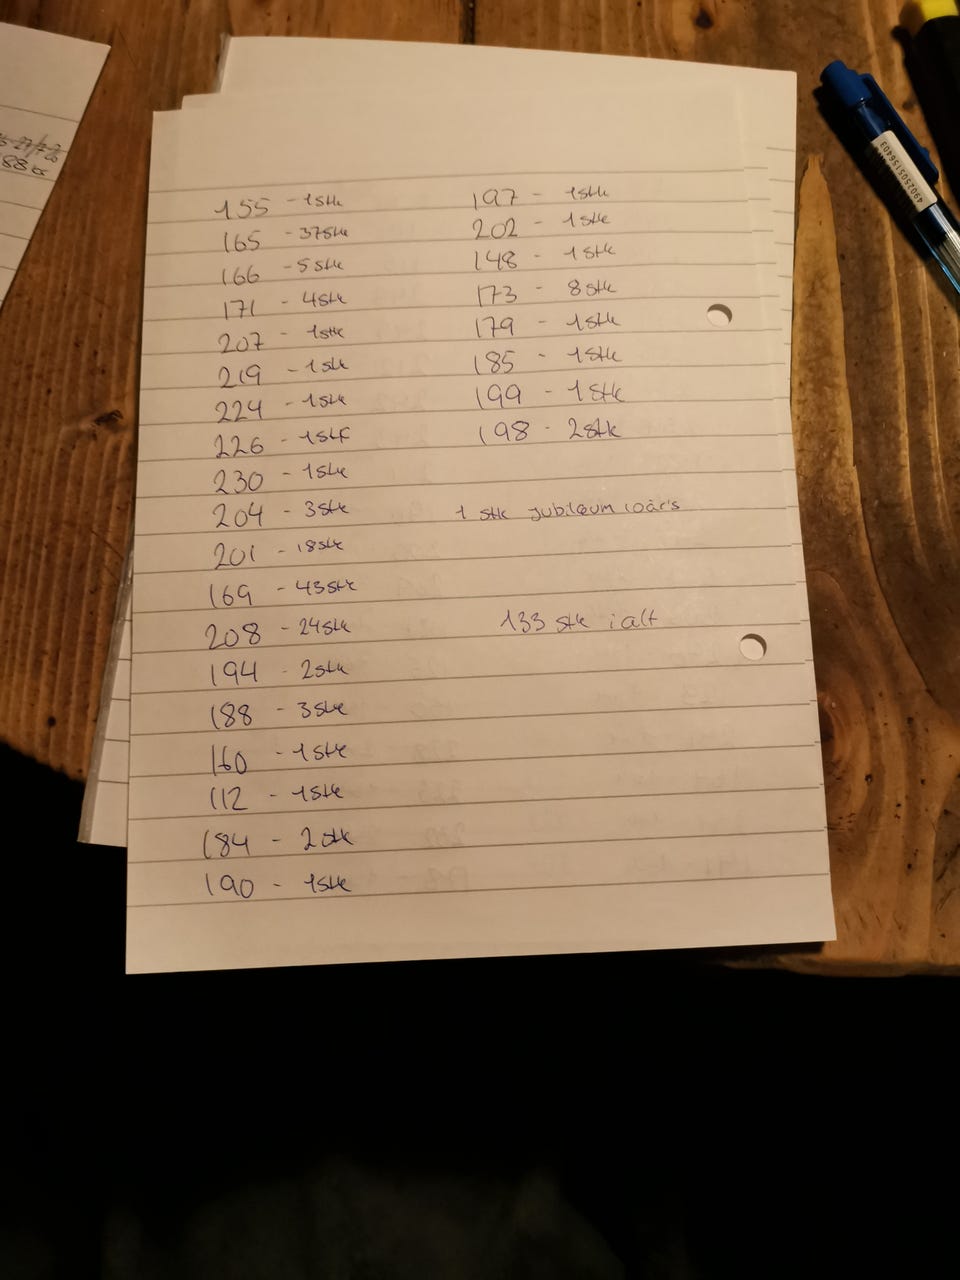 155 - 1stk
165 - 37stk
166 - 5stk
171 - 4stk
207 - 1stk
219 - 1stk
224 - 1stk
226 - 1stk
230 - 1stk
204 - 3stk
201 - 18stk
169 - 43stk
208 - 24stk
194 - 2stk
188 - 3stk
160 - 1stk
112 - 1stk
184 - 2stk
190 - 1stk
197 - 1stk
202 - 1stk
148 - 1stk
173 - 8stk
179 - 1stk
185 - 1stk
199 - 1stk
198 - 2stk
1 stk jubilæum 100år's
133 stk i alt
88
4902505156403